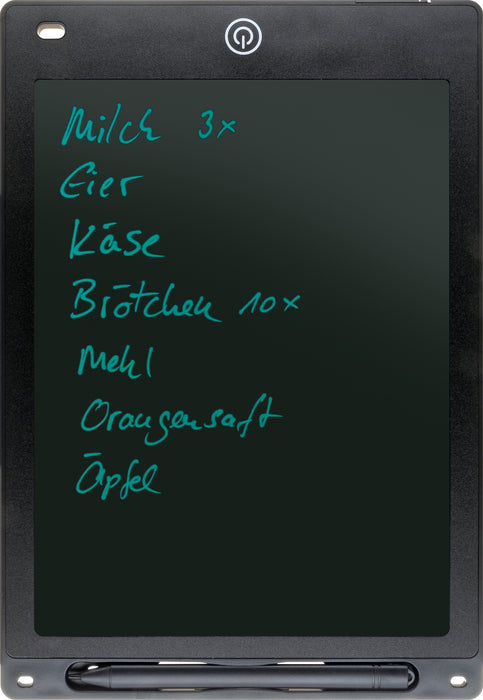 Milch 3x
Eier
Käse
Brötchen 10x
Mehl
Orangensaft
Äpfel